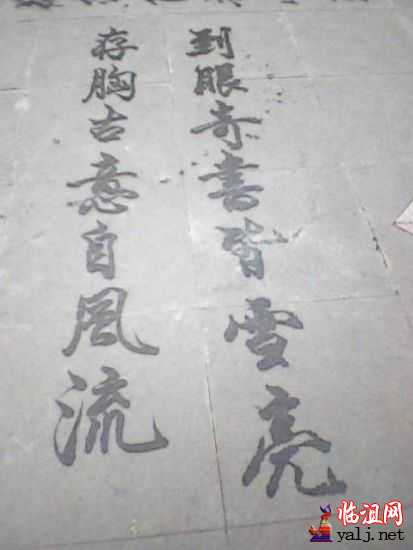 到眼奇書皆雪亮
存胸古意自風流
临沮网
yalj.net